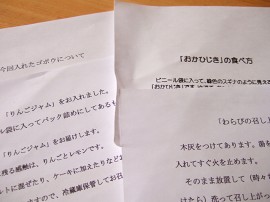 今回入れたゴボウについて
「りんごジャム」をお入れました。
ル袋に入ってパック詰めにしてある
「りんごジャム」をお届けします。
る感触は、りんごとレモンです。
ルトに混ぜたり、ケーキに加えたりなど
ますので、冷蔵庫保管してお召
「おかひじき」の食べ方
ビニール袋に入って、緑色のスギナのように見える
「わらびの召し上
木灰をつけてあります。苗を
入れてすぐ火を止めます。
そのまま放置して（時々
けたら）洗って召し上が